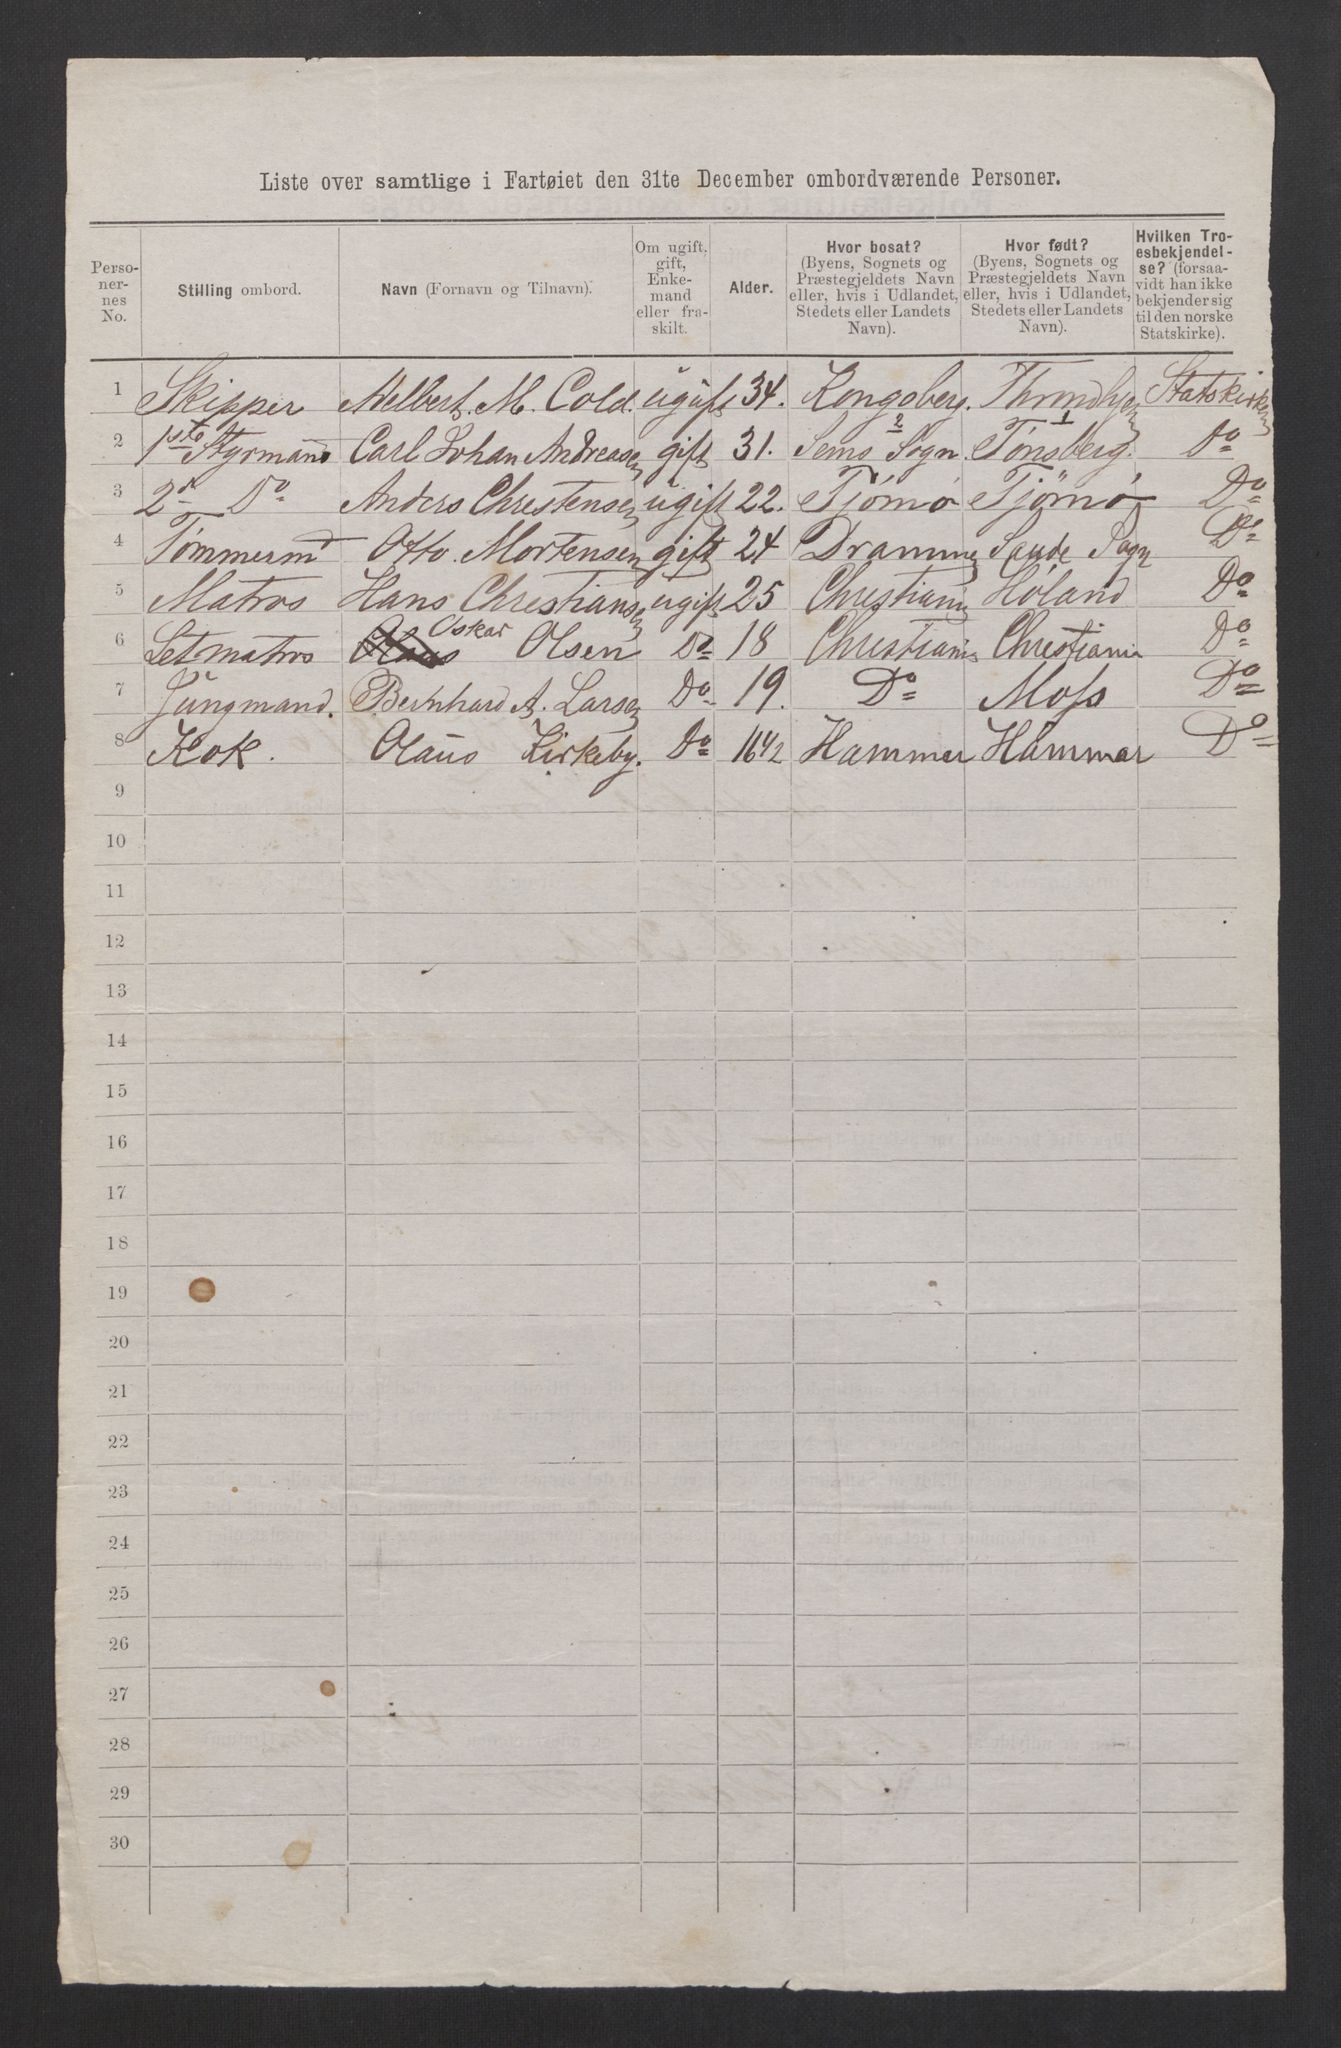 Liste over samtlige i Fartøiet den 31te December ombordværende Personer.
Perso-ner-nes No. | Stilling ombord. | Navn (Fornavn og Tilnavn). | Om ugift, gift, Enke-mand eller fra-skilt. | Alder. | Hvor bosat? (Byens, Sognets og Præstegjeldets Navn eller, hvis i Udlandet, Stedets eller Landets Navn). | Hvor født? (Byens, Sognets og Præstegjeldets Navn eller, hvis i Udlandet, Stedets eller Landets Navn). | Hvilken Tro-esbekjendel-se? (forsaa-vidt han ikke bekjender sig til den norske Statskirke).
1 Skipper Melbert. M. Cold. ugift 34. Kongsberg. Throndhjem Statskirken
2 1ste Styrmand Carl Johan Andreasen gift 31. Sems 2 Sogn. 1 Tönsberg. Do
3 2d Do Anders Christensen ugift 22. Tjömö Tjömö Do
4 Tømmermd Otto. Mortensen gift 24 Drammen Sande Sogn Do
5 Matros Hans Christiansen ugift 25 Christiania Høland Do
6 Letmatros Olaus Oskar Olsen Do 18 Christiania Christiania Do
7 Jungmand. Bernhard A. Larsen Do 19. Do Moss Do
8 Kok. Olaus Kirkeby. Do 16 1/2 Hammer Hammar Do
9
10
11
12
13
14
15
16
17
18
19
20
21
22
23
24
25
26
27
28
29
30